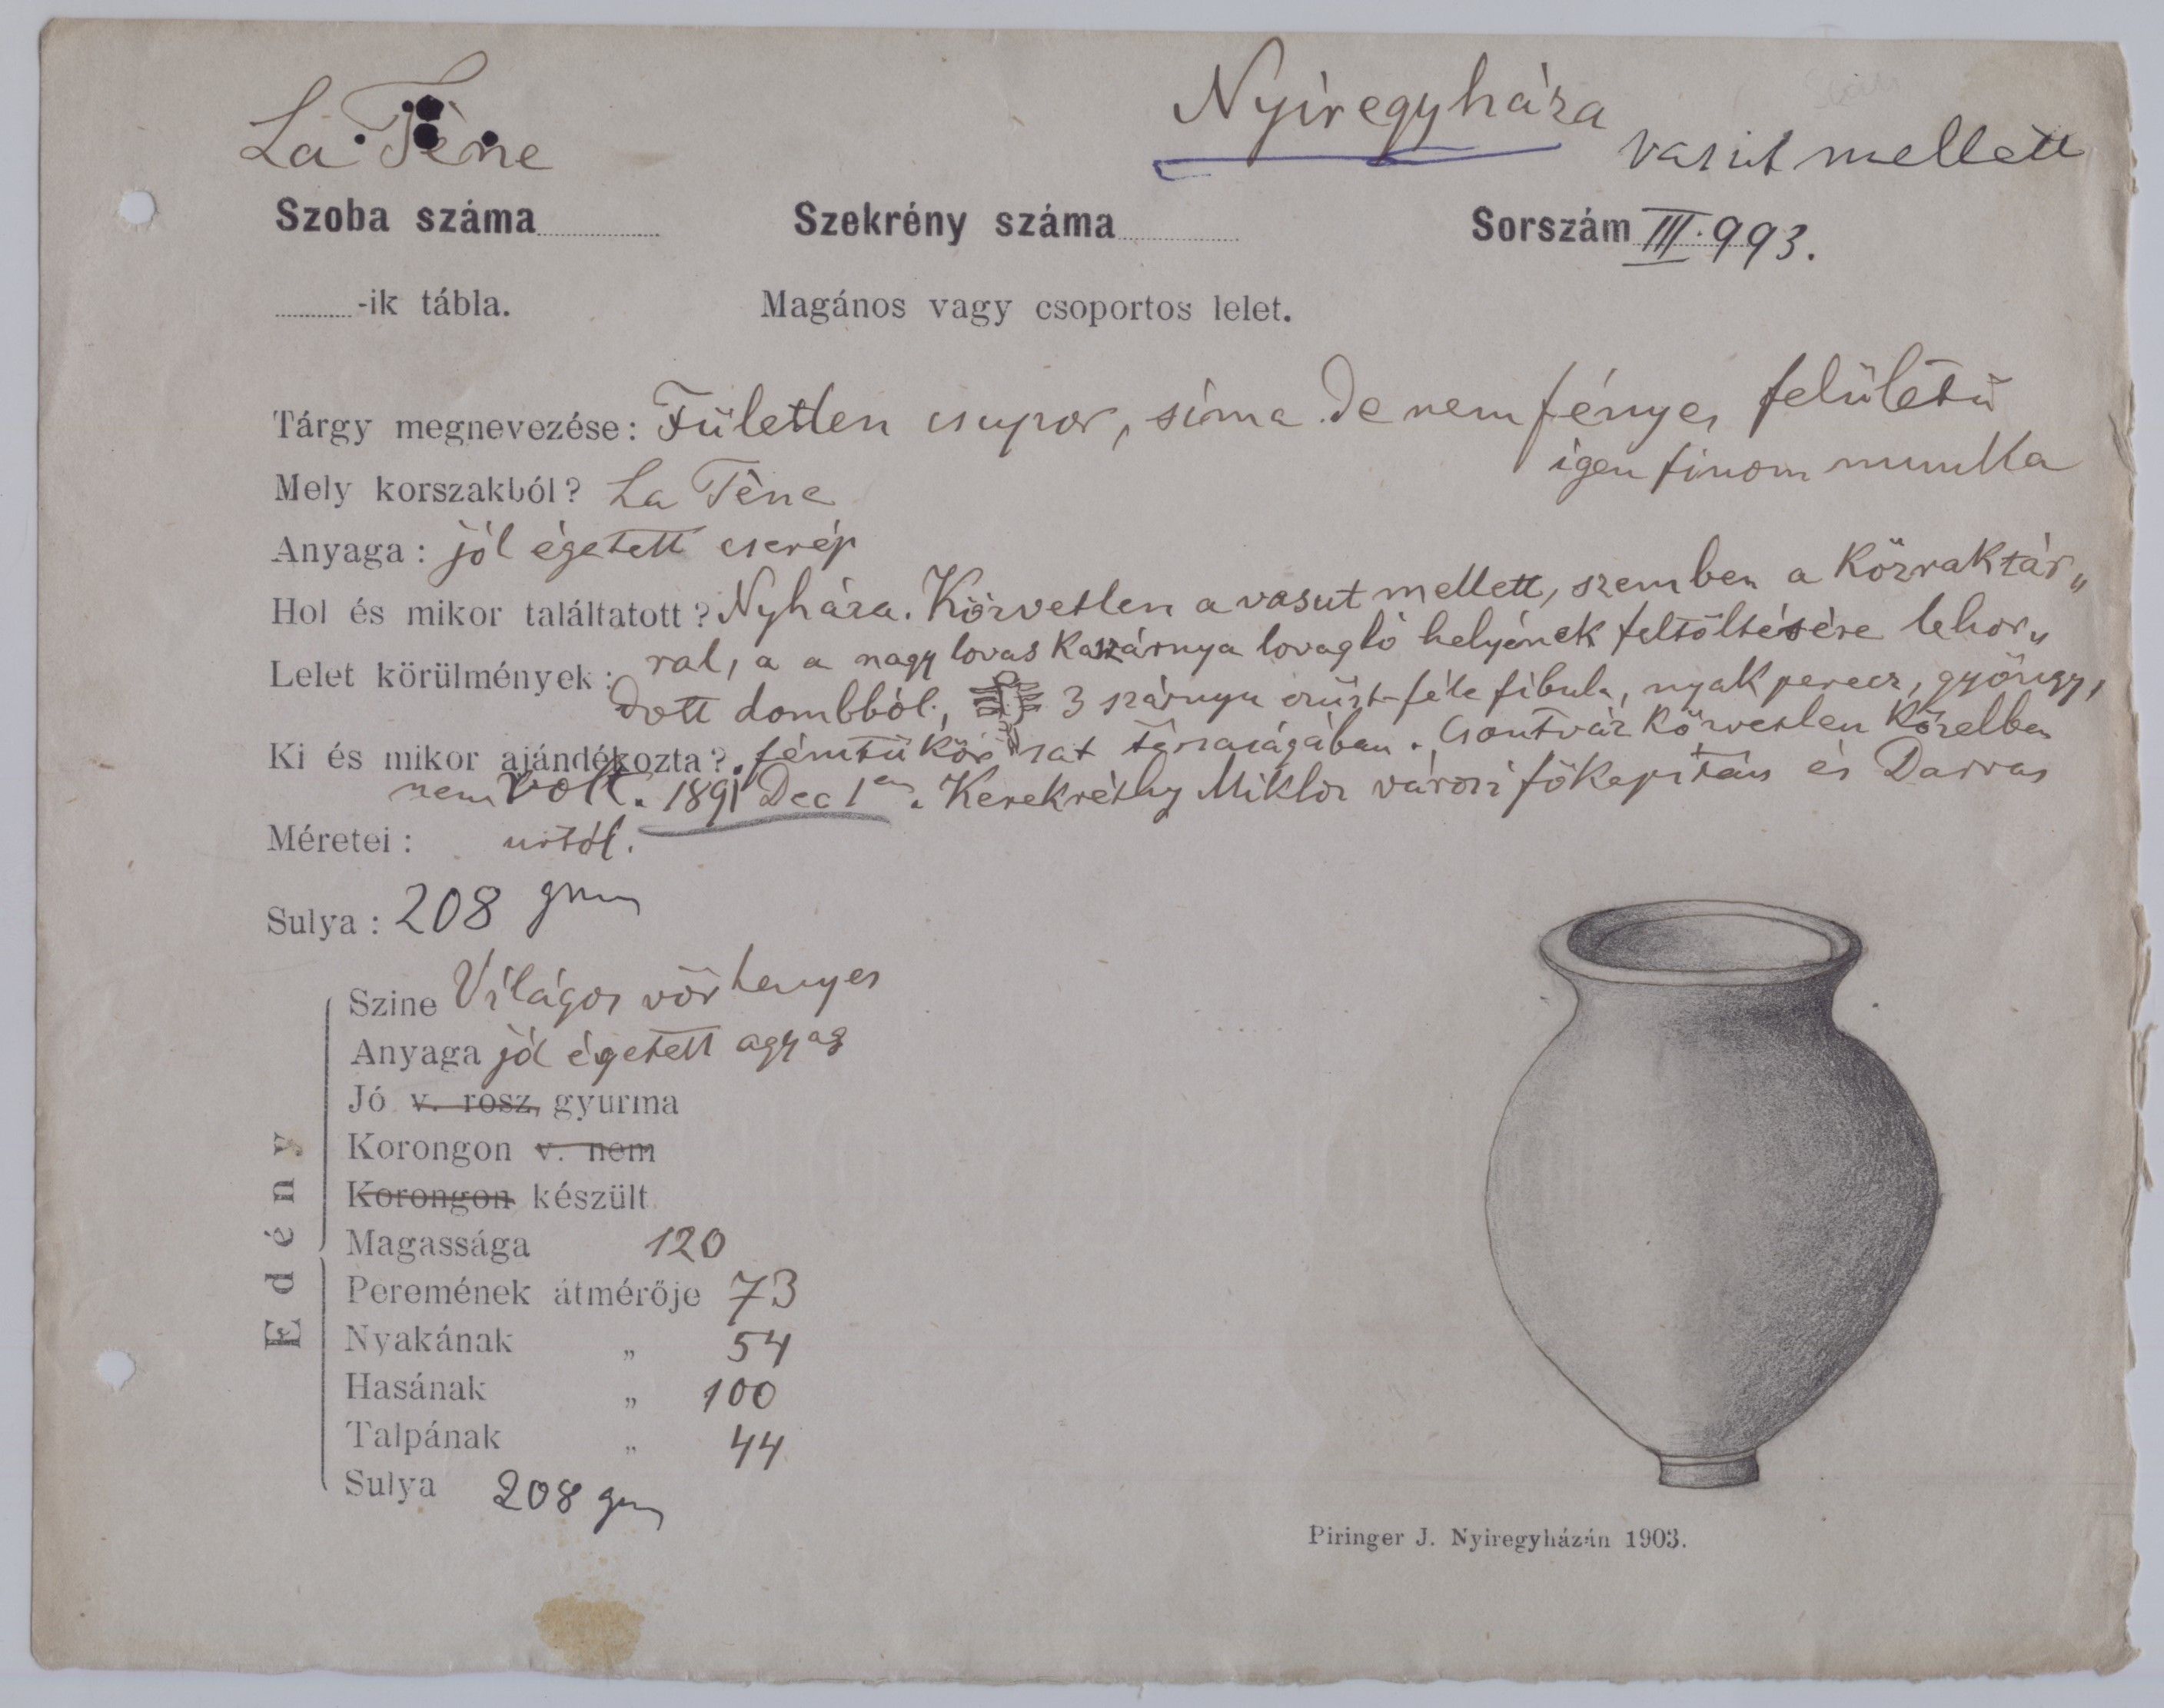 La Tène
Nyiregyháza
vasút mellett
Szoba száma
Szekrény száma
Sorszám III. 993.
-ik tábla.
Magános vagy csoportos lelet.
Tárgy megnevezése: Fületlen csupor, sima de nem fényes felületü
igen finom munka
Mely korszakból? La Tène
Anyaga: jól égetett cserép
Hol és mikor találtatott? Nyháza. Közvetlen a vasut mellett, szemben a Közraktár„
Lelet körülmények: ral, a a nagy lovas kaszárnya lovagló helyének feltöltésére lehor„
dott dombból, 3 szárnyu ezüst-féle fibula, nyak perecz, gyöngy,
Ki és mikor ajándékozta? fémtükör sat társaságában. Csontváz közvetlen közelben
nem volt. 1891 Dec 1en. Kerekréthy Miklós városi főkapitány és Darvas
Méretei: urtól.
Sulya: 208 gmm
Edény
Szine Világos vörhenyes
Anyaga jól égetett agyag
Jó v. rosz, gyurma
Korongon v. nem
Korongon készült
Magassága 120
Peremének átmérője 73
Nyakának „ 54
Hasának „ 100
Talpának „ 44
Sulya 208 gm
Piringer J. Nyiregyházán 1903.